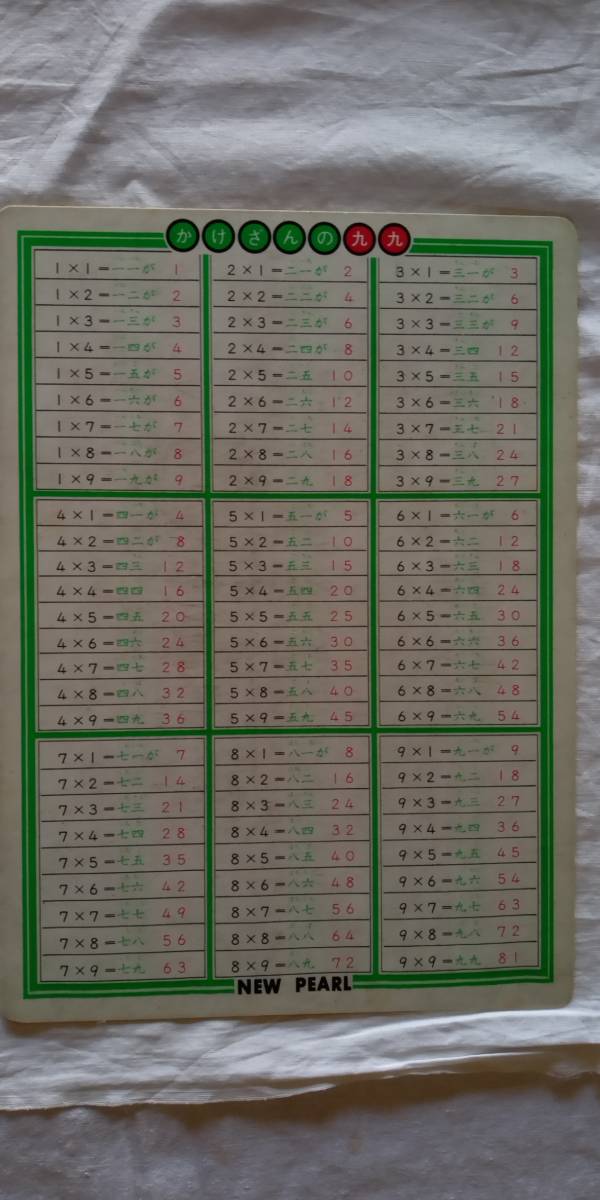 かけざんの九九
1×1=一一が 1
1×2=一二が 2
1×3=一三が 3
1×4=一四が 4
1×5=一五が 5
1×6=一六が 6
1×7=一七が 7
1×8=一八が 8
1×9=一九が 9
2×1=二一が 2
2×2=二二が 4
2×3=二三が 6
2×4=二四が 8
2×5=二五 10
2×6=二六 12
2×7=二七 14
2×8=二八 16
2×9=二九 18
3×1=三一が 3
3×2=三二が 6
3×3=三三が 9
3×4=三四 12
3×5=三五 15
3×6=三六 18
3×7=三七 21
3×8=三八 24
3×9=三九 27
4×1=四一が 4
4×2=四二が 8
4×3=四三 12
4×4=四四 16
4×5=四五 20
4×6=四六 24
4×7=四七 28
4×8=四八 32
4×9=四九 36
5×1=五一が 5
5×2=五二 10
5×3=五三 15
5×4=五四 20
5×5=五五 25
5×6=五六 30
5×7=五七 35
5×8=五八 40
5×9=五九 45
6×1=六一が 6
6×2=六二 12
6×3=六三 18
6×4=六四 24
6×5=六五 30
6×6=六六 36
6×7=六七 42
6×8=六八 48
6×9=六九 54
7×1=七一が 7
7×2=七二 14
7×3=七三 21
7×4=七四 28
7×5=七五 35
7×6=七六 42
7×7=七七 49
7×8=七八 56
7×9=七九 63
8×1=八一が 8
8×2=八二 16
8×3=八三 24
8×4=八四 32
8×5=八五 40
8×6=八六 48
8×7=八七 56
8×8=八八 64
8×9=八九 72
9×1=九一が 9
9×2=九二 18
9×3=九三 27
9×4=九四 36
9×5=九五 45
9×6=九六 54
9×7=九七 63
9×8=九八 72
9×9=九九 81
NEW PEARL